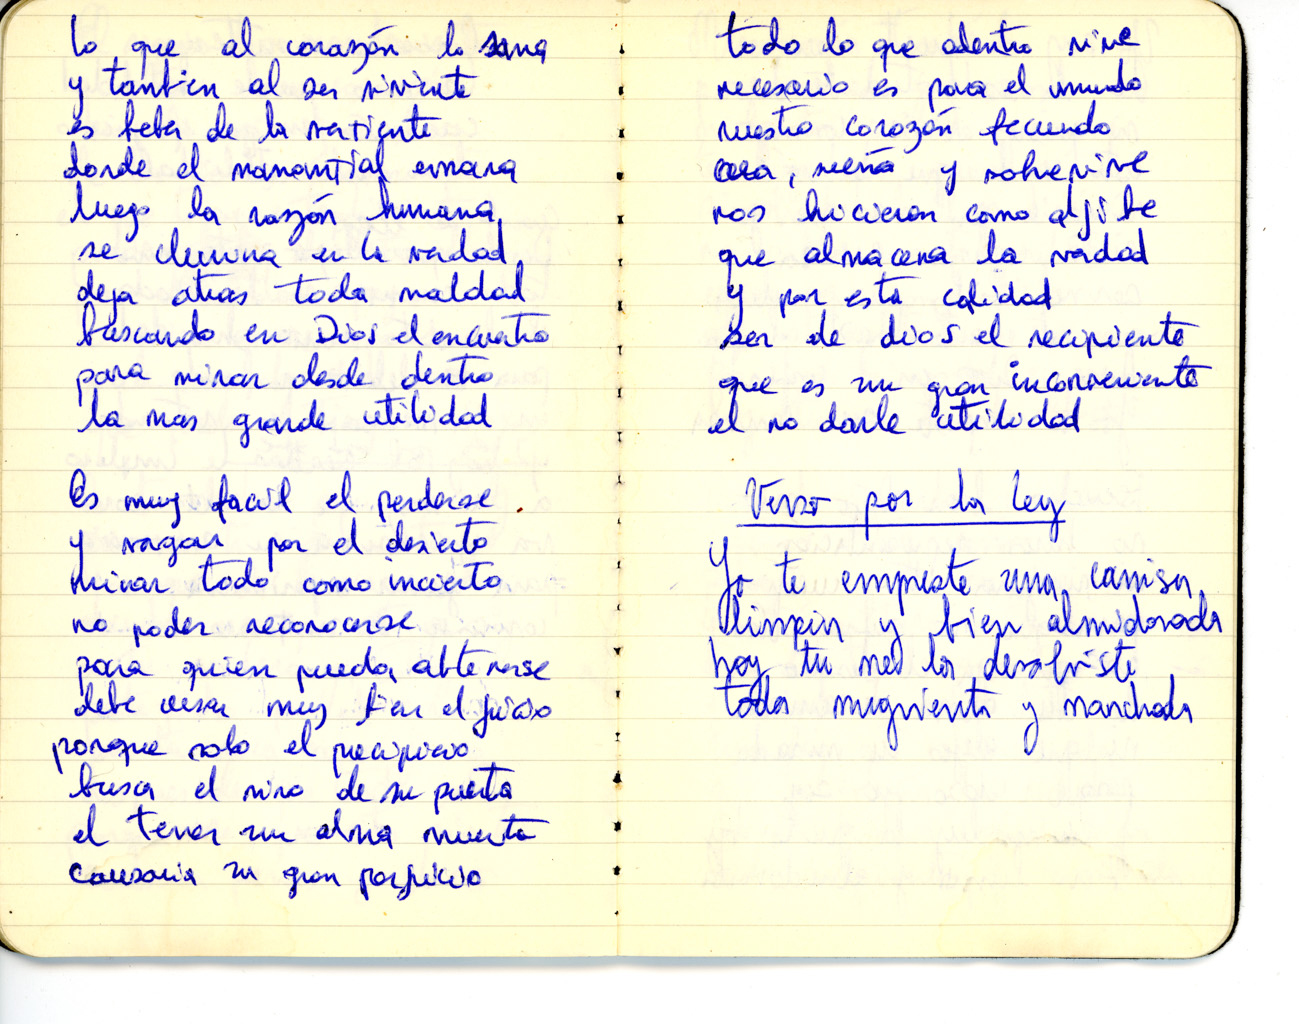 lo que al corazón lo sana
y tambien al ser viviente
es beber de la vertiente
donde el manantial emana
luego la razón humana
se ilumina en la verdad
deja atras toda maldad
buscando en Dios el encuentro
para mirar desde dentro
la mas grande utilidad
Es muy facil el perderse
y vagar por el desierto
mirar todo como incierto
no poder reconocerse
para quien pueda abtenerse
debe usar muy bien el juicio
porque solo el precipicio
busca el niño de su puerta
el tener un alma muerta
causaria su gran perjuicio
todo lo que adentro vive
necesario es para el mundo
nuestro corazón fecundo
crea, sueña y sobrevive
nos hicieron como aljibe
que almacena la verdad
y por esta calidad
ser de dios el recipiente
que es un gran inconveniente
el no darle utilidad
Verso por la ley
Yo te empreste una camisa
limpia y bien almidonada
hoy tu me la devolviste
toda mugrienta y manchada